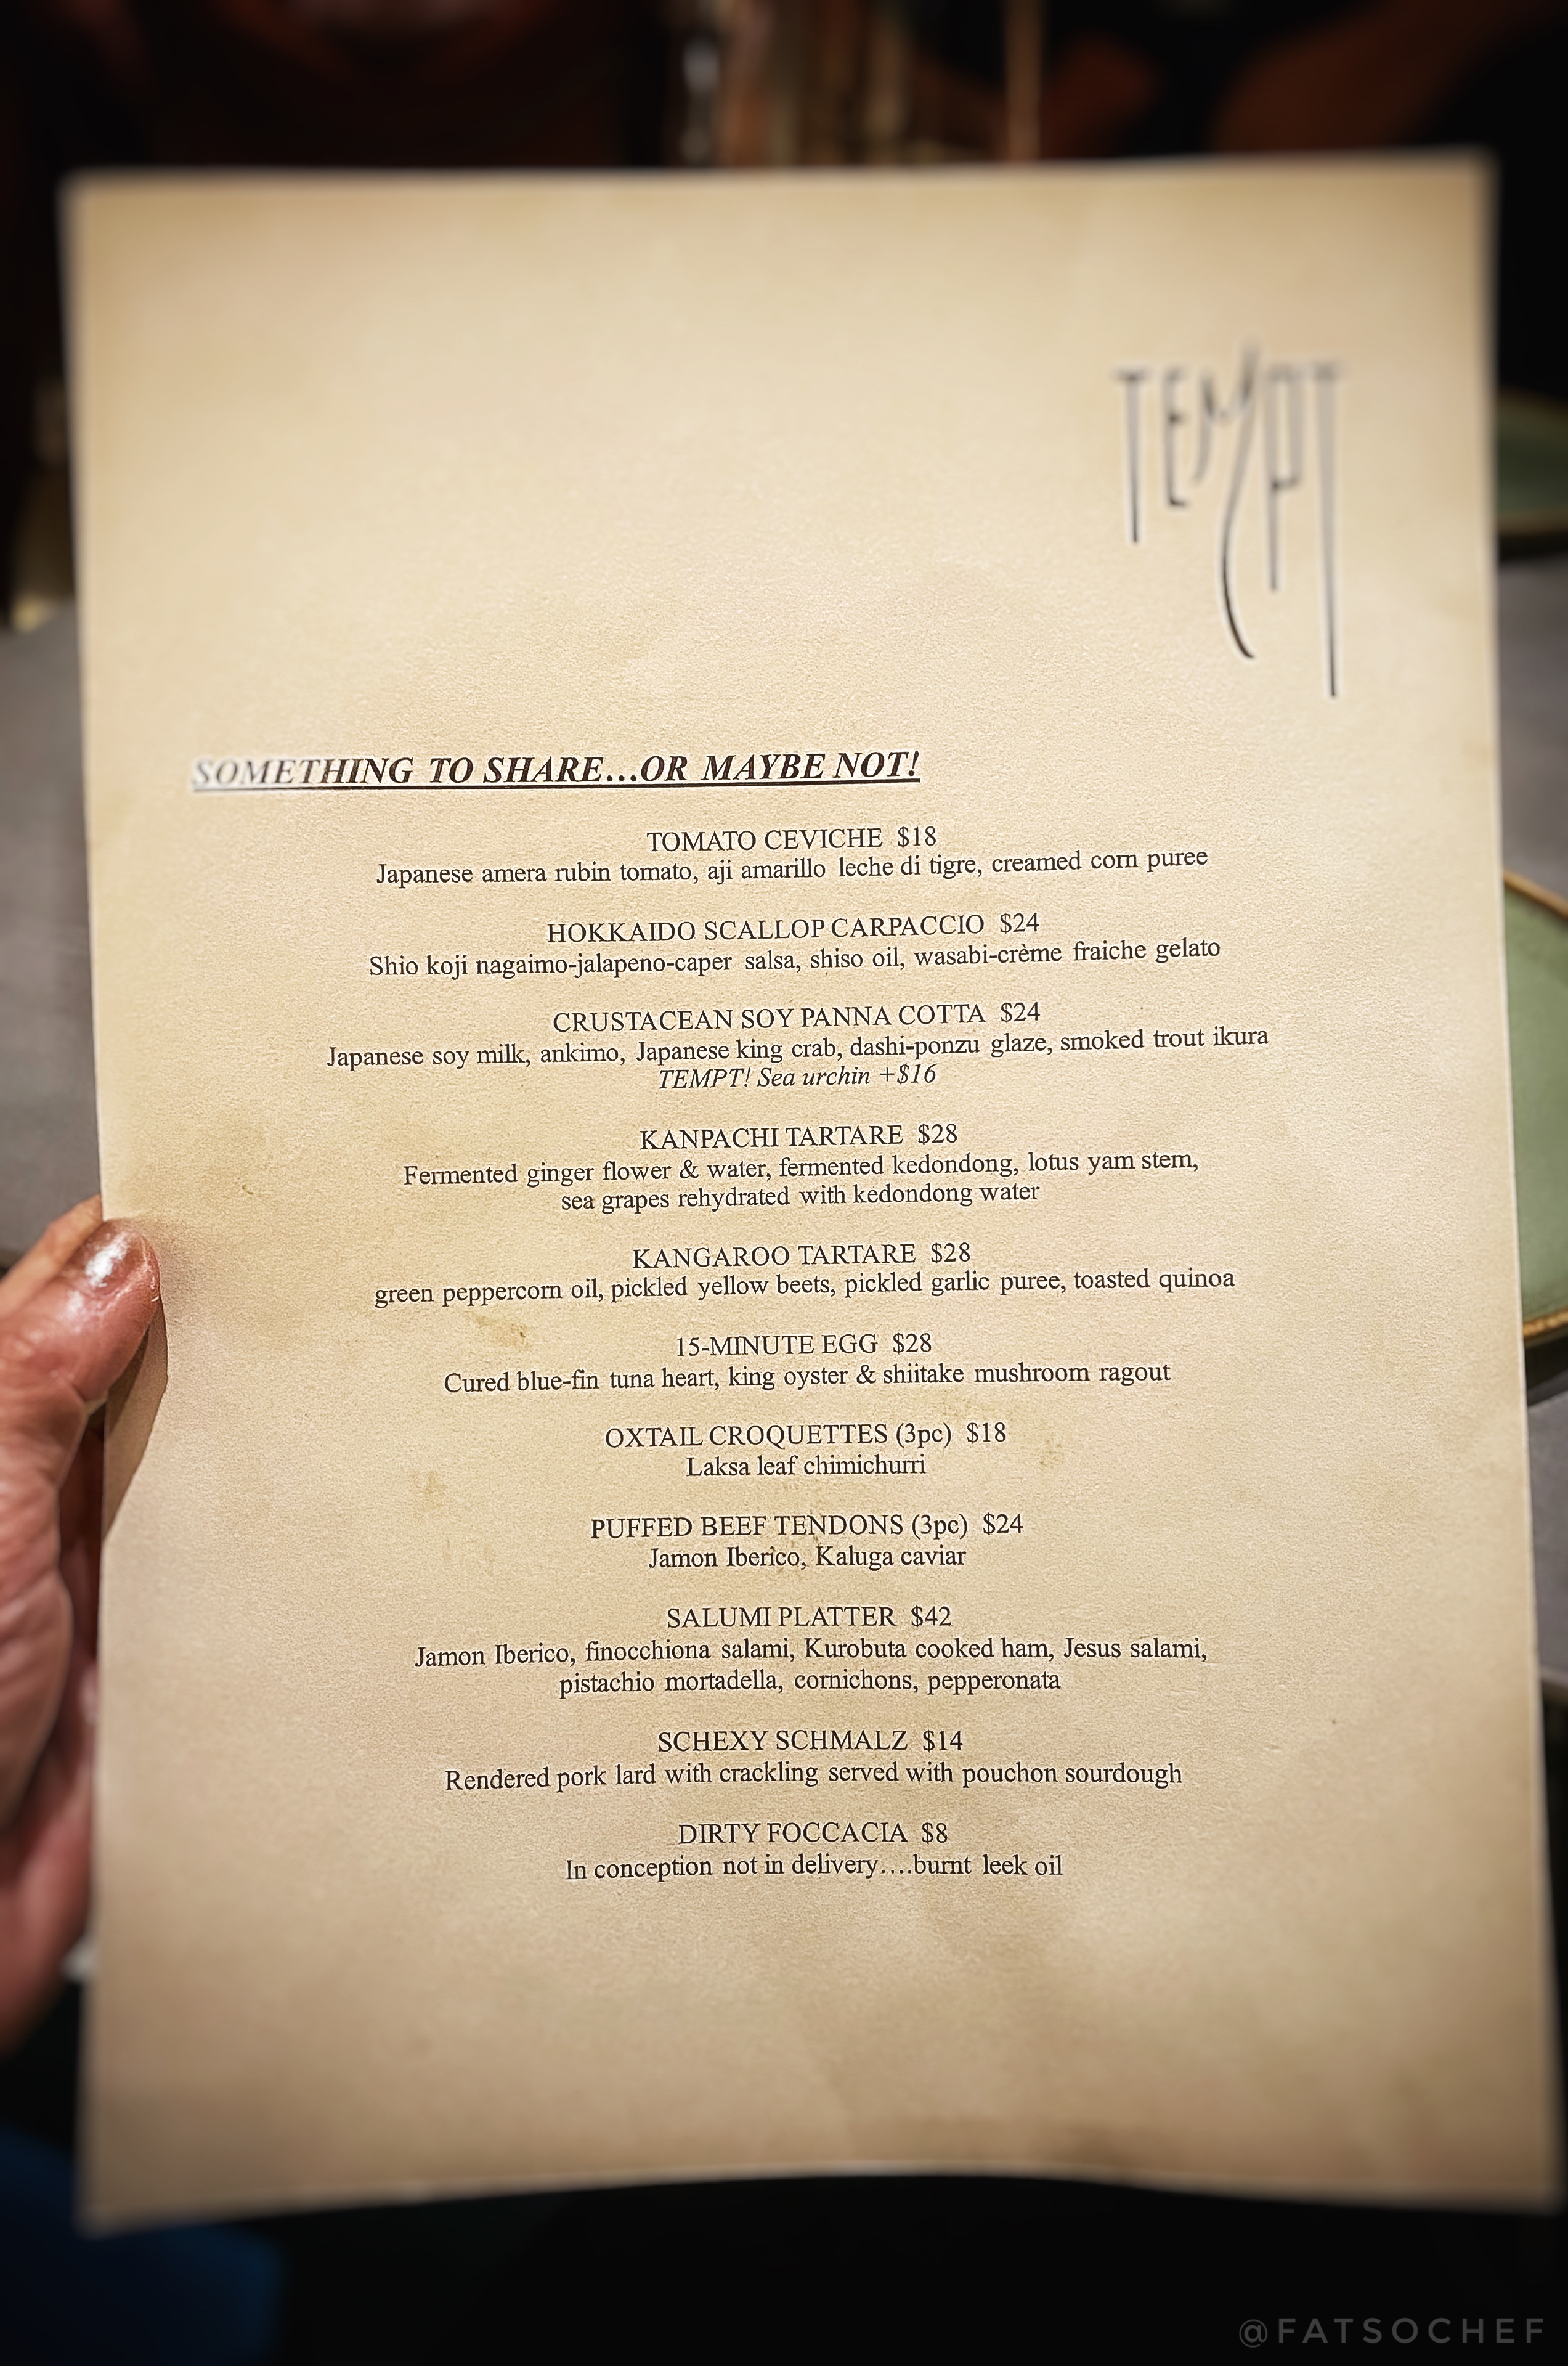 TEMPT
SOMETHING TO SHARE...OR MAYBE NOT!
TOMATO CEVICHE $18
Japanese amera rubin tomato, aji amarillo leche di tigre, creamed corn puree
HOKKAIDO SCALLOP CARPACCIO $24
Shio koji nagaimo-jalapeno-caper salsa, shiso oil, wasabi-crème fraiche gelato
CRUSTACEAN SOY PANNA COTTA $24
Japanese soy milk, ankimo, Japanese king crab, dashi-ponzu glaze, smoked trout ikura
TEMPT! Sea urchin +$16
KANPACHI TARTARE $28
Fermented ginger flower & water, fermented kedondong, lotus yam stem,
sea grapes rehydrated with kedondong water
KANGAROO TARTARE $28
green peppercorn oil, pickled yellow beets, pickled garlic puree, toasted quinoa
15-MINUTE EGG $28
Cured blue-fin tuna heart, king oyster & shiitake mushroom ragout
OXTAIL CROQUETTES (3pc) $18
Laksa leaf chimichurri
PUFFED BEEF TENDONS (3pc) $24
Jamon Iberico, Kaluga caviar
SALUMI PLATTER $42
Jamon Iberico, finocchiona salami, Kurobuta cooked ham, Jesus salami,
pistachio mortadella, cornichons, pepperonata
SCHEXY SCHMALZ $14
Rendered pork lard with crackling served with pouchon sourdough
DIRTY FOCCACIA $8
In conception not in delivery....burnt leek oil
@FATSOCHEF